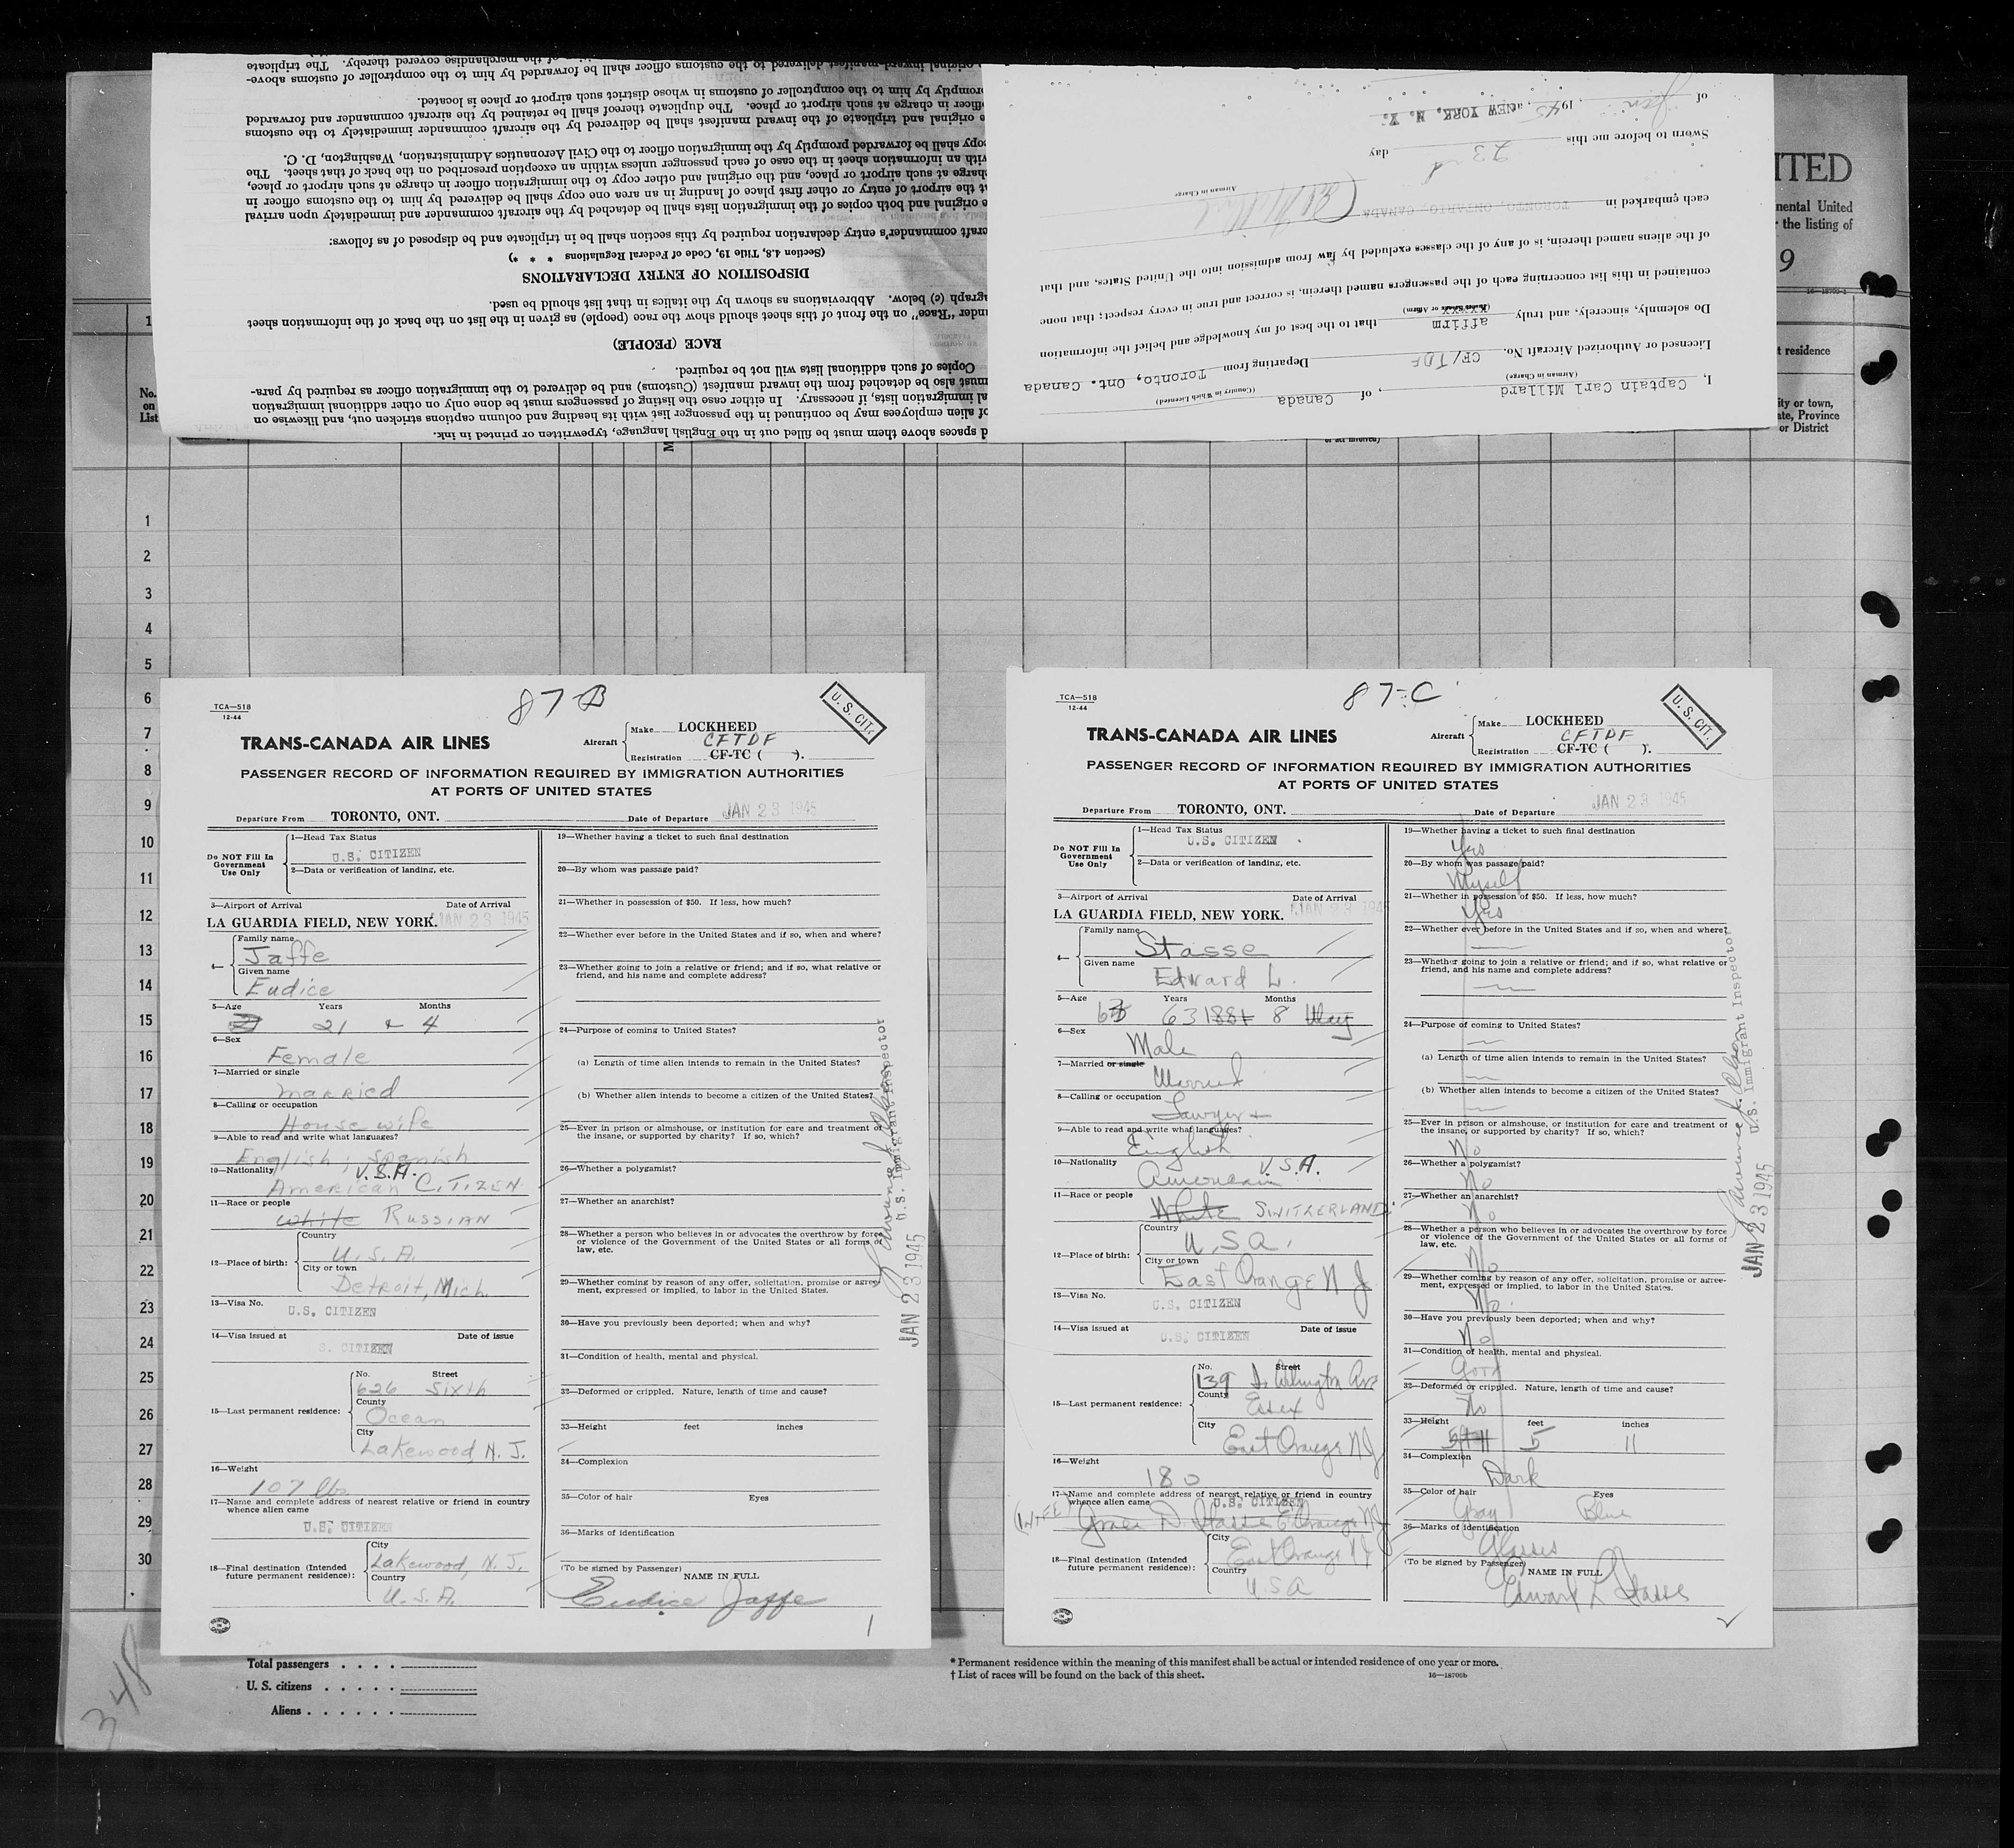 original inward manifest delivered to the customs officer shall be forwarded by him to the comptroller of customs above-
of the merchandise covered thereby. The triplicate
promptly by him to the comptroller of customs in whose district such airport or place is located.
officer in charge at such airport or place. The duplicate thereof shall be retained by the aircraft commander and forwarded
e original and triplicate of the inward manifest shall be delivered by the aircraft commander immediately to the customs
opy shall be forwarded promptly by the immigration officer to the Civil Aeronautics Administration, Washington, D. C.
with an information sheet in the case of each passenger unless within an exception prescribed on the back of that sheet. The
charge at such airport or place, and the original and other copy to the immigration officer in charge at such airport or place,
at the airport of entry or other first place of landing in an area one copy shall be delivered by him to the customs officer in
e original and both copies of the immigration lists shall be detached by the aircraft commander and immediately upon arrival
craft commander's entry declaration required by this section shall be in triplicate and be disposed of as follows:
(Section 4.8, Title 19, Code of Federal Regulations * * *)
DISPOSITION OF ENTRY DECLARATIONS
agraph (c) below. Abbreviations as shown by the italics in that list should be used.
under "Race" on the front of this sheet should show the race (people) as given in the list on the back of the information sheet
RACE (PEOPLE)
Copies of such additional lists will not be required.
must also be detached from the inward manifest (Customs) and be delivered to the immigration officer as required by para-
al immigration lists, if necessary. In either case the listing of passengers must be done only on other additional immigration
of alien employees may be continued in the passenger list with its heading and column captions stricken out, and likewise on
d spaces above them must be filled out in the English language, typewritten or printed in ink.
I, Captain Carl Millard, of Canada
(Airman in Charge) (Country in Which Licensed)
Licensed or Authorized Aircraft No. CF/TDF Departing from Toronto, Ont. Canada
Do solemnly, sincerely, and truly affirm that to the best of my knowledge and belief the information
contained in this list concerning each of the passengers named therein, is correct and true in every respect; that none
of the aliens named therein, is of any of the classes excluded by law from admission into the United States, and that
each embarked in TORONTO, ONTARIO, CANADA
Airman in Charge
Sworn to before me this 23rd day
of Jan, 1945, at NEW YORK, N. Y.
ITED
nental United
r the listing of
9
t residence
ity or town,
ate, Province
or District
No.
on
List
1
2
3
4
5
6
7
8
9
10
11
12
13
14
15
16
17
18
19
20
21
22
23
24
25
26
27
28
29
30
TCA—518
12-44
87-B
U. S. CIT.
TRANS-CANADA AIR LINES
Aircraft
Make LOCKHEED
CFTDF
Registration CF-TC ( ).
PASSENGER RECORD OF INFORMATION REQUIRED BY IMMIGRATION AUTHORITIES
AT PORTS OF UNITED STATES
Departure From TORONTO, ONT. Date of Departure JAN 23 1945
Do NOT Fill In
Government
Use Only
1—Head Tax Status
U.S. CITIZEN
2—Data or verification of landing, etc.
3—Airport of Arrival Date of Arrival
LA GUARDIA FIELD, NEW YORK. JAN 23 1945
4—
Family name
Jaffe
Given name
Eudice
5—Age Years Months
21 & 4
6—Sex
Female
7—Married or single
Married
8—Calling or occupation
House wife
9—Able to read and write what languages?
English; Spanish
10—Nationality U.S.A.
American CITIZEN
11—Race or people
White RUSSIAN
12—Place of birth:
Country
U.S.A.
City or town
Detroit, Mich.
13—Visa No.
U.S. CITIZEN
14—Visa issued at Date of issue
S. CITIZEN
15—Last permanent residence:
No. Street
626 Sixth
County
Ocean
City
Lakewood, N. J.
16—Weight
107 lbs.
17—Name and complete address of nearest relative or friend in country
whence alien came
U.S. CITIZEN
18—Final destination (Intended
future permanent residence):
City
Lakewood, N. J.
Country
U.S.A.
19—Whether having a ticket to such final destination
20—By whom was passage paid?
21—Whether in possession of $50. If less, how much?
22—Whether ever before in the United States and if so, when and where?
23—Whether going to join a relative or friend; and if so, what relative or
friend, and his name and complete address?
24—Purpose of coming to United States?
(a) Length of time alien intends to remain in the United States?
(b) Whether alien intends to become a citizen of the United States?
25—Ever in prison or almshouse, or institution for care and treatment of
the insane, or supported by charity? If so, which?
26—Whether a polygamist?
27—Whether an anarchist?
28—Whether a person who believes in or advocates the overthrow by force
or violence of the Government of the United States or all forms of
law, etc.
29—Whether coming by reason of any offer, solicitation, promise or agree-
ment, expressed or implied, to labor in the United States.
30—Have you previously been deported; when and why?
31—Condition of health, mental and physical.
32—Deformed or crippled. Nature, length of time and cause?
33—Height feet inches
34—Complexion
35—Color of hair Eyes
36—Marks of identification
(To be signed by Passenger)
NAME IN FULL
Eudice Jaffe
1
JAN 23 1945 U.S. Immigrant Inspector
TCA—518
12-44
87-C
U. S. CIT.
TRANS-CANADA AIR LINES
Aircraft
Make LOCKHEED
CFTDF
Registration CF-TC ( ).
PASSENGER RECORD OF INFORMATION REQUIRED BY IMMIGRATION AUTHORITIES
AT PORTS OF UNITED STATES
Departure From TORONTO, ONT. Date of Departure JAN 23 1945
Do NOT Fill In
Government
Use Only
1—Head Tax Status
U.S. CITIZEN
2—Data or verification of landing, etc.
3—Airport of Arrival Date of Arrival
LA GUARDIA FIELD, NEW YORK. JAN 23 1945
4—
Family name
Stasse
Given name
Edward L.
5—Age Years Months
63 1881 8 May
6—Sex
Male
7—Married or single
Married
8—Calling or occupation
Lawyer
9—Able to read and write what languages?
English
10—Nationality U.S.A.
American
11—Race or people
White SWITZERLAND
12—Place of birth:
Country
U.S.A.
City or town
East Orange N J
13—Visa No.
U.S. CITIZEN
14—Visa issued at Date of issue
U.S. CITIZEN
15—Last permanent residence:
No. Street
139 Arlington Ave
County
Essex
City
East Orange NJ
16—Weight
180
17—Name and complete address of nearest relative or friend in country
whence alien came U.S. CITIZEN
(WIFE) Grace D. Stasse E Orange NJ
18—Final destination (Intended
future permanent residence):
City
East Orange NJ
Country
U.S.A
19—Whether having a ticket to such final destination
Yes
20—By whom was passage paid?
Myself
21—Whether in possession of $50. If less, how much?
Yes
22—Whether ever before in the United States and if so, when and where?
23—Whether going to join a relative or friend; and if so, what relative or
friend, and his name and complete address?
24—Purpose of coming to United States?
(a) Length of time alien intends to remain in the United States?
(b) Whether alien intends to become a citizen of the United States?
25—Ever in prison or almshouse, or institution for care and treatment of
the insane, or supported by charity? If so, which?
No
26—Whether a polygamist?
No
27—Whether an anarchist?
No
28—Whether a person who believes in or advocates the overthrow by force
or violence of the Government of the United States or all forms of
law, etc.
No
29—Whether coming by reason of any offer, solicitation, promise or agree-
ment, expressed or implied, to labor in the United States.
No.
30—Have you previously been deported; when and why?
No
31—Condition of health, mental and physical.
Good
32—Deformed or crippled. Nature, length of time and cause?
No
33—Height feet inches
5 11
34—Complexion
Dark
35—Color of hair Eyes
Gray Blue
36—Marks of identification
Glasses
(To be signed by Passenger)
NAME IN FULL
Edward L Stasse
JAN 23 1945 U.S. Immigrant Inspector
348
Total passengers . . . .
U. S. citizens . . . . .
Aliens . . . . . .
* Permanent residence within the meaning of this manifest shall be actual or intended residence of one year or more.
† List of races will be found on the back of this sheet.
16—18700b